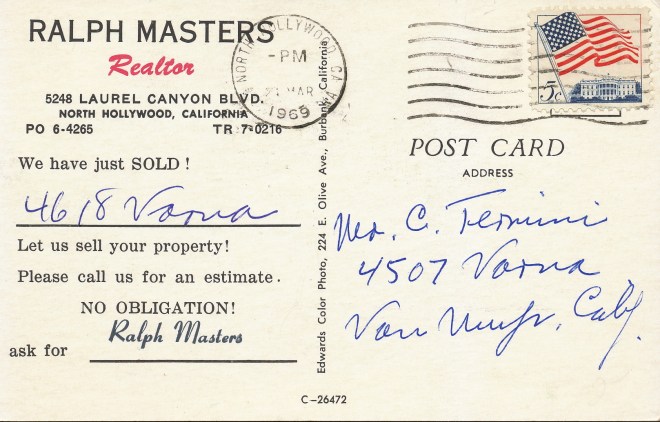 RALPH MASTERS
Realtor
5248 LAUREL CANYON BLVD.
NORTH HOLLYWOOD, CALIFORNIA
PO 6-4265 TR 7-0216
We have just SOLD!
4618 Varna
Let us sell your property!
Please call us for an estimate.
NO OBLIGATION!
ask for Ralph Masters
Edwards Color Photo, 224 E. Olive Ave., Burbank, California
C-26472
NORTH HOLLYWOOD, CA
-PM
MAR
1969
5c
POST CARD
ADDRESS
Mr. C. Termini
4507 Varna
Van Nuys, Calif.